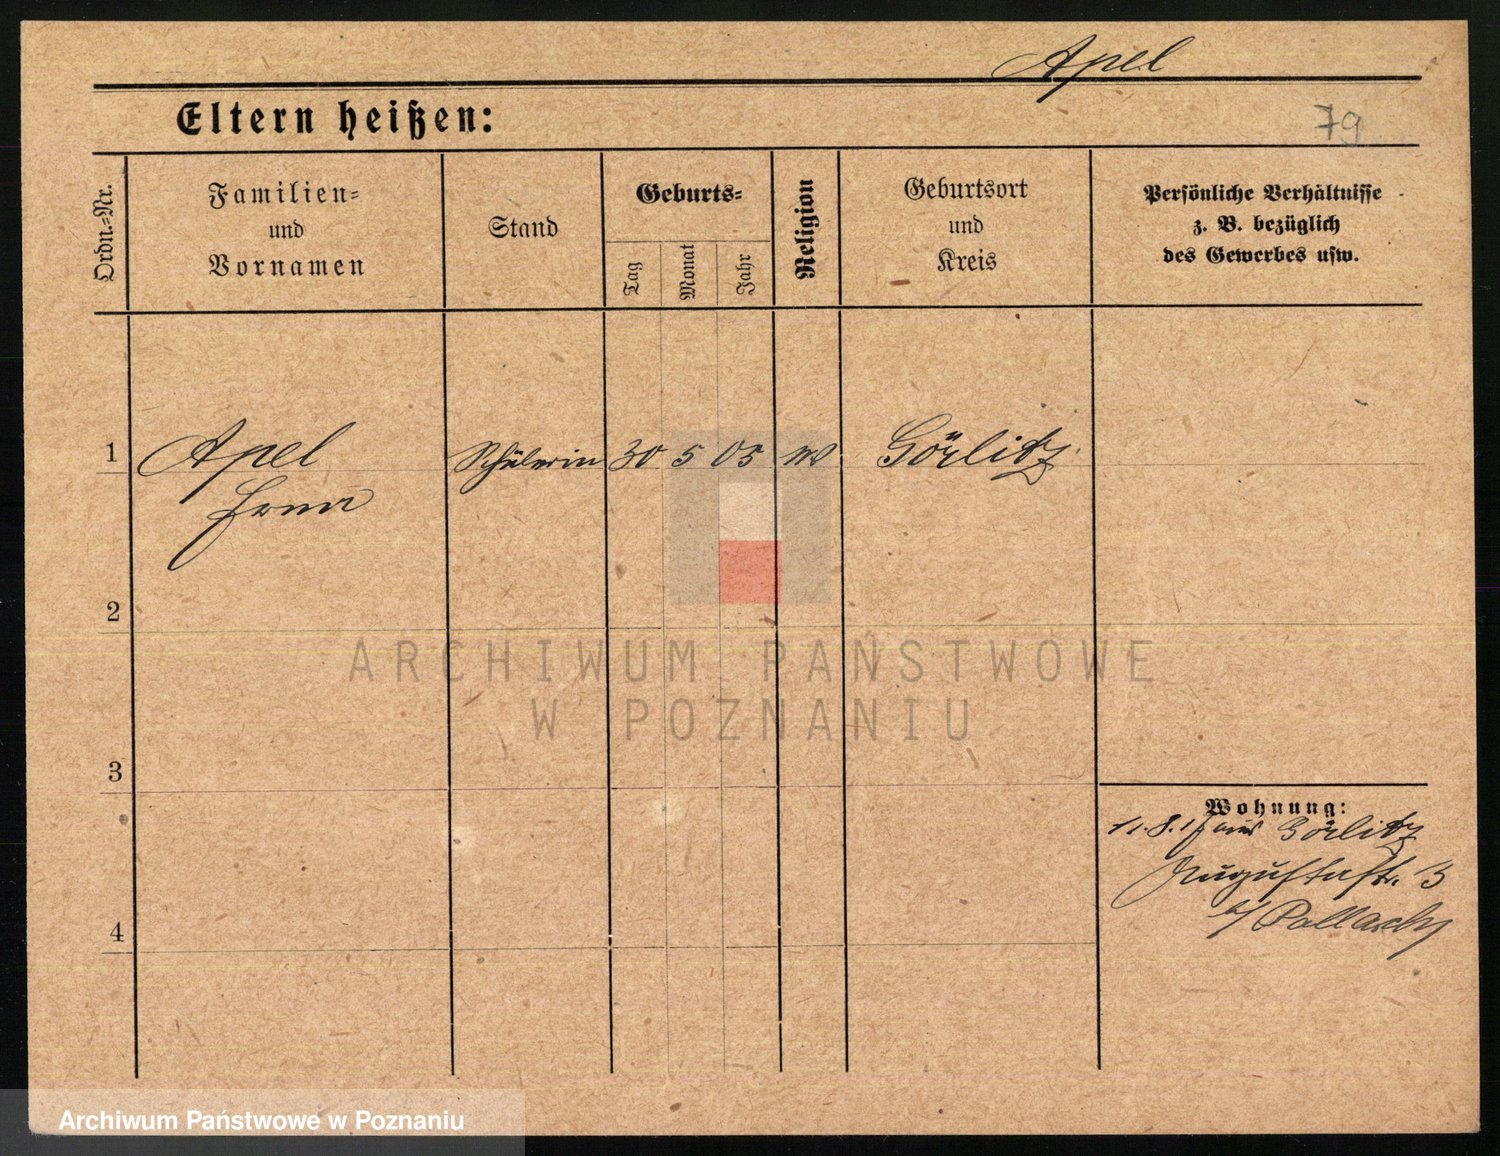 Apel
Eltern heißen:
79
Ordn.-Nr.
Familien-
und
Vornamen
Stand
Geburts-
Tag
Monat
Jahr
Religion
Geburtsort
und
Kreis
Persönliche Verhältnisse
z. B. bezüglich
des Gewerbes usw.
1
Apel
Schülerin
30
5
05
Görlitz
2
3
4
Wohnung:
11.8.17 aus Görlitz
Augustastr. 13
b/
ARCHIWUM PAŃSTWOWE
W POZNANIU
Archiwum Państwowe w Poznaniu